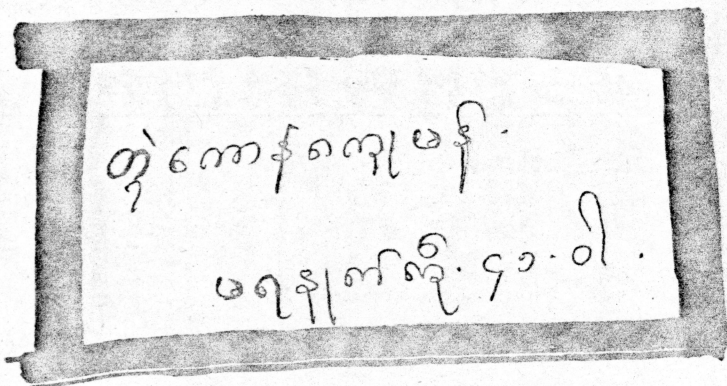 တ္ၚဲကောန်ဂကူမန်.
မရနုက်ကဵု. ၄၁. ဝါ .